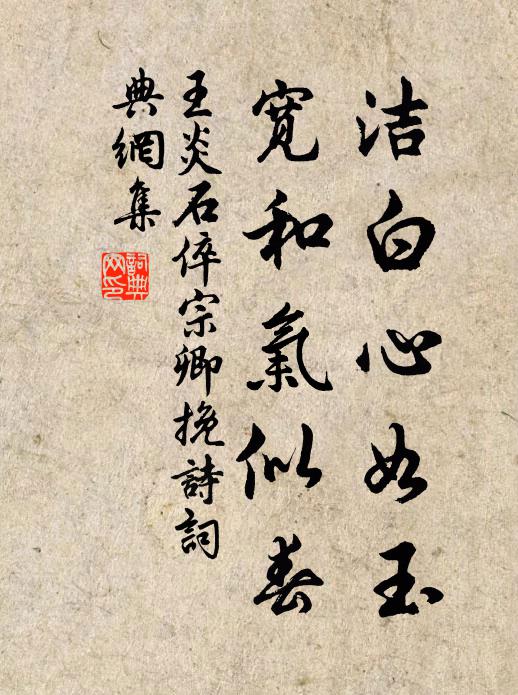 洁白心如玉
寛和氣似春
王炎石倅宗卿挽詩詞
典網集
詞典
网印